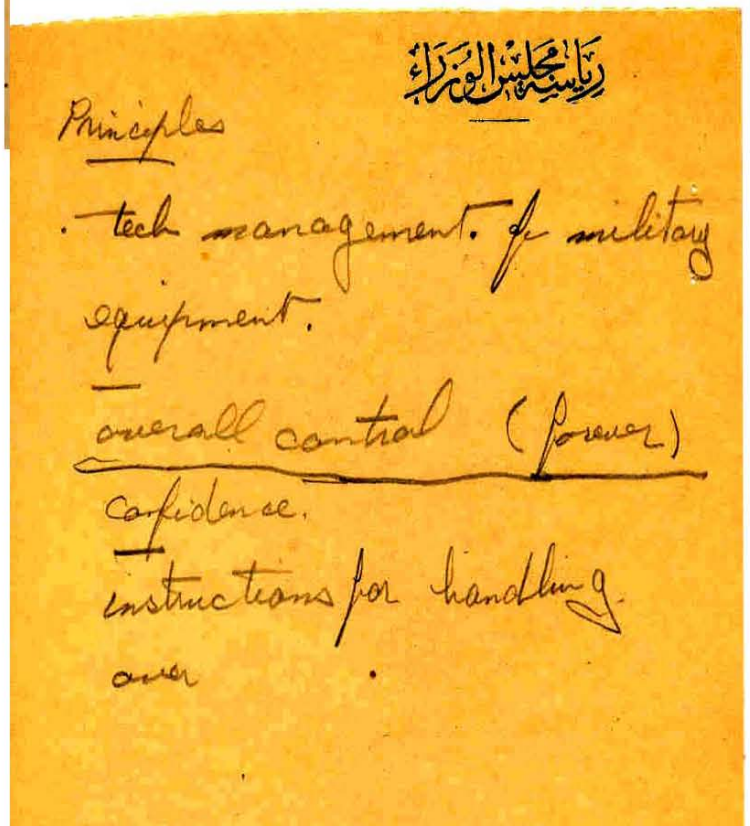 رياسة مجلس الوزراء
Principles
. tech management. for military
equipment.
overall control (forever)
confidence.
instructions for handling
over .